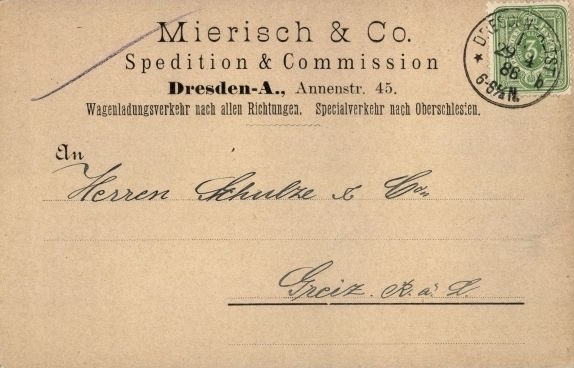 Mierisch & Co.
Spedition & Commission
Dresden-A., Annenstr. 45.
Wagenladungsverkehr nach allen Richtungen. Specialverkehr nach Oberschlesien.
DRESDEN ALTST.
29 9
86
6-6½N. b
3
An
Herren Schulze & Con
Greiz. R. a. L.